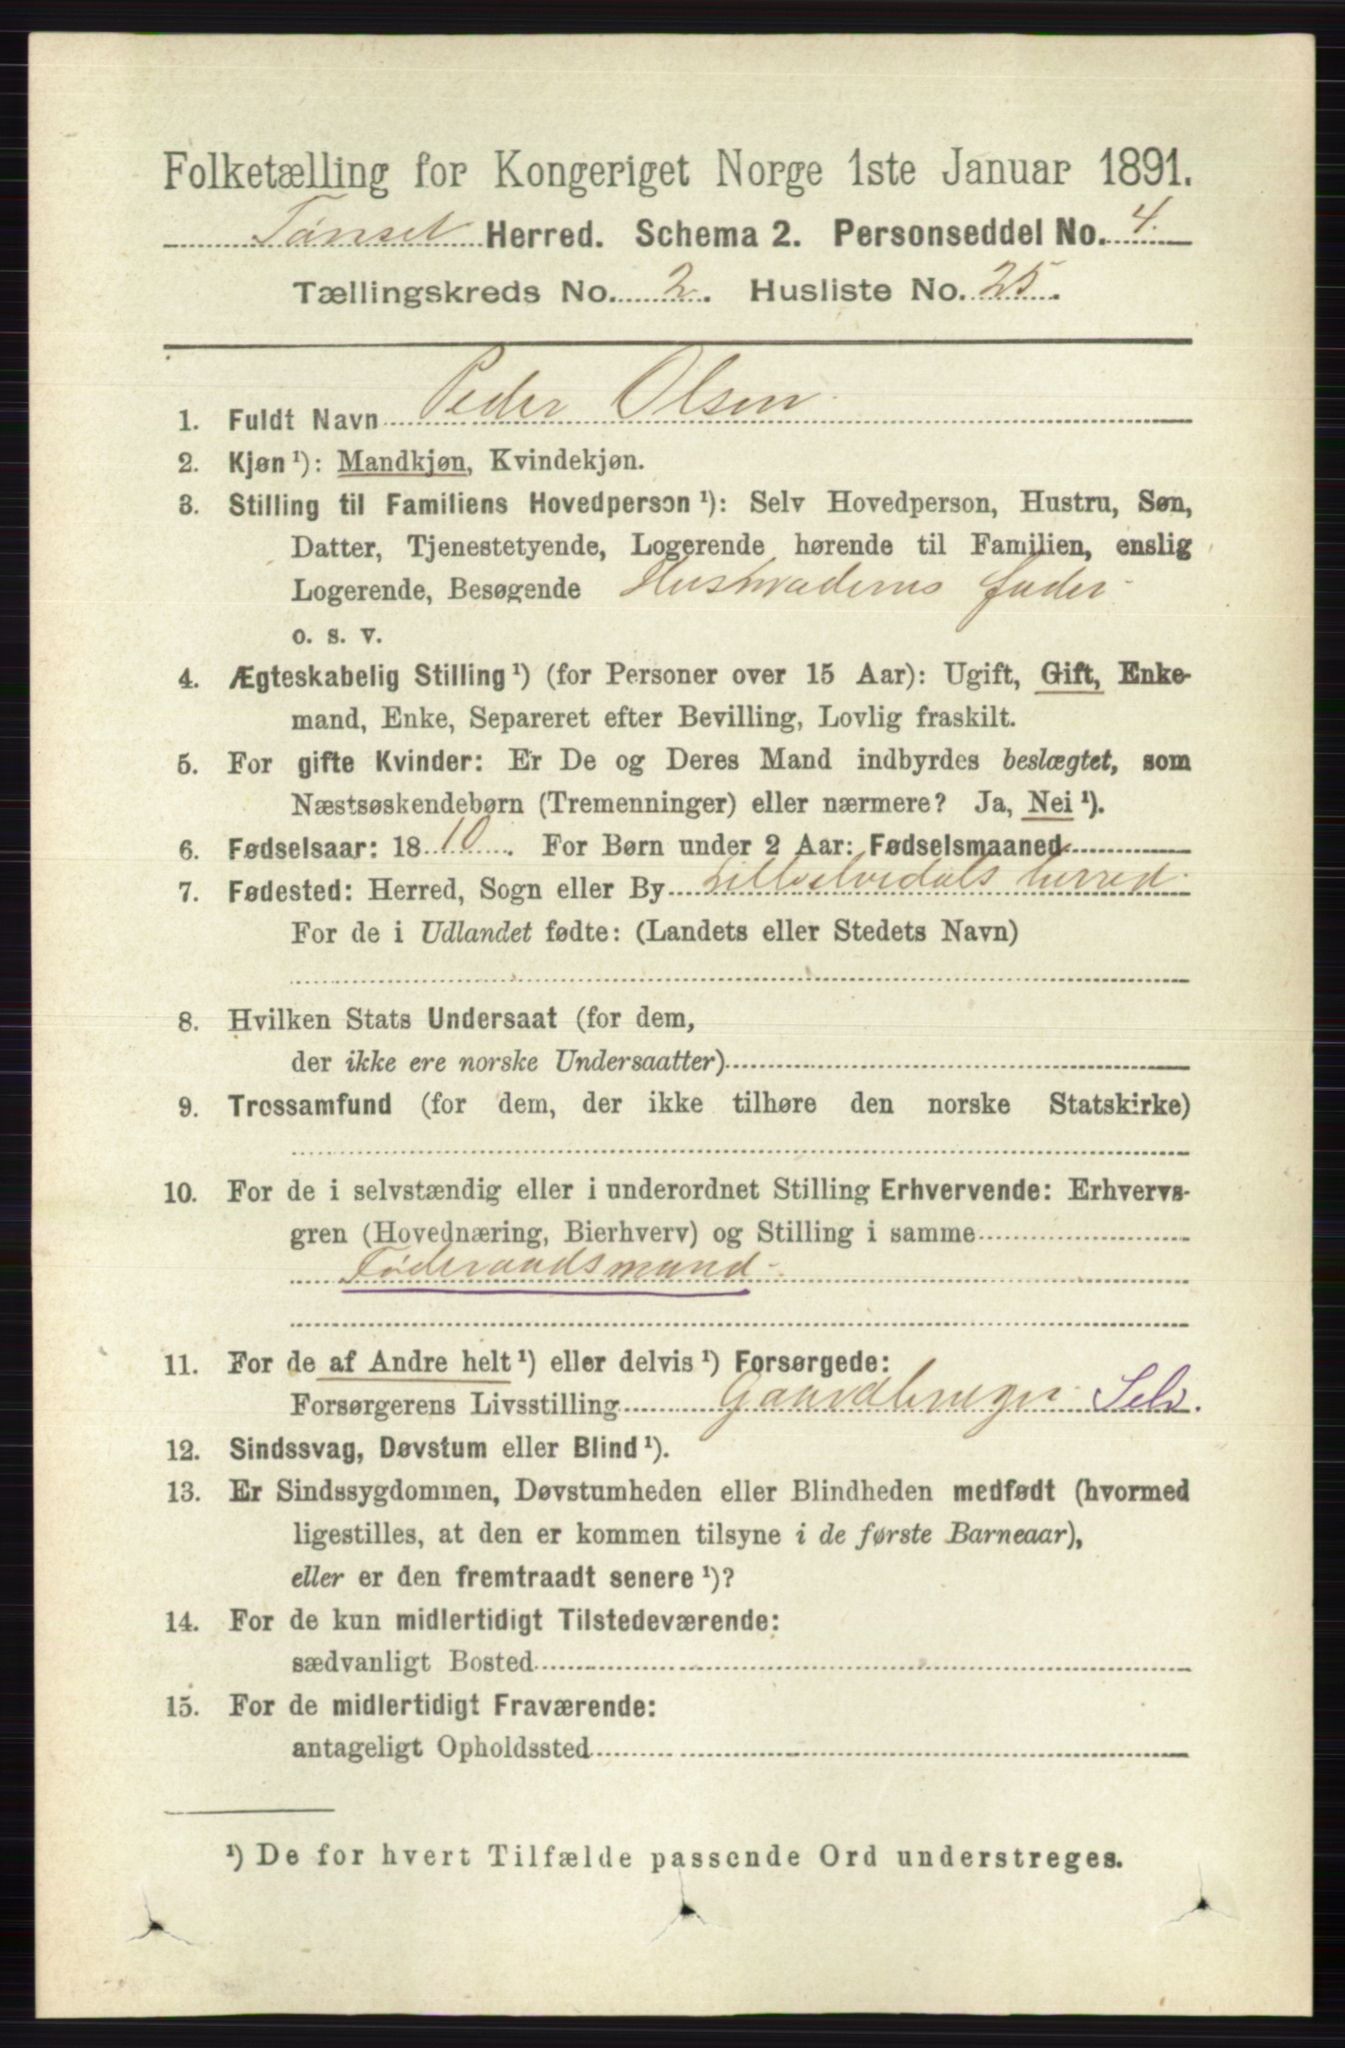 Folketælling for Kongeriget Norge 1ste Januar 1891.
Tønset Herred. Schema 2. Personseddel No. 4.
Tællingskreds No. 2. Husliste No. 25.
1. Fuldt Navn Peder Olsen
2. Kjøn ¹): Mandkjøn, Kvindekjøn.
3. Stilling til Familiens Hovedperson ¹): Selv Hovedperson, Hustru, Søn,
Datter, Tjenestetyende, Logerende hørende til Familien, enslig
Logerende, Besøgende Husmoderens fader
o. s. v.
4. Ægteskabelig Stilling ¹) (for Personer over 15 Aar): Ugift, Gift, Enke-
mand, Enke, Separeret efter Bevilling, Lovlig fraskilt.
5. For gifte Kvinder: Er De og Deres Mand indbyrdes beslægtet, som
Næstsøskendebørn (Tremenninger) eller nærmere? Ja, Nei ¹).
6. Fødselsaar: 1810. For Børn under 2 Aar: Fødselsmaaned
7. Fødested: Herred, Sogn eller By Lilleelvedals herred
For de i Udlandet fødte: (Landets eller Stedets Navn)
8. Hvilken Stats Undersaat (for dem,
der ikke ere norske Undersaatter)
9. Trossamfund (for dem, der ikke tilhøre den norske Statskirke)
10. For de i selvstændig eller i underordnet Stilling Erhvervende: Erhvervs-
gren (Hovednæring, Bierhverv) og Stilling i samme
Føderaadsmand
11. For de af Andre helt ¹) eller delvis ¹) Forsørgede:
Forsørgerens Livsstilling Gaardbruger Selv.
12. Sindssvag, Døvstum eller Blind ¹).
13. Er Sindssygdommen, Døvstumheden eller Blindheden medfødt (hvormed
ligestilles, at den er kommen tilsyne i de første Barneaar),
eller er den fremtraadt senere ¹)?
14. For de kun midlertidigt Tilstedeværende:
sædvanligt Bosted
15. For de midlertidigt Fraværende:
antageligt Opholdssted
¹) De for hvert Tilfælde passende Ord understreges.